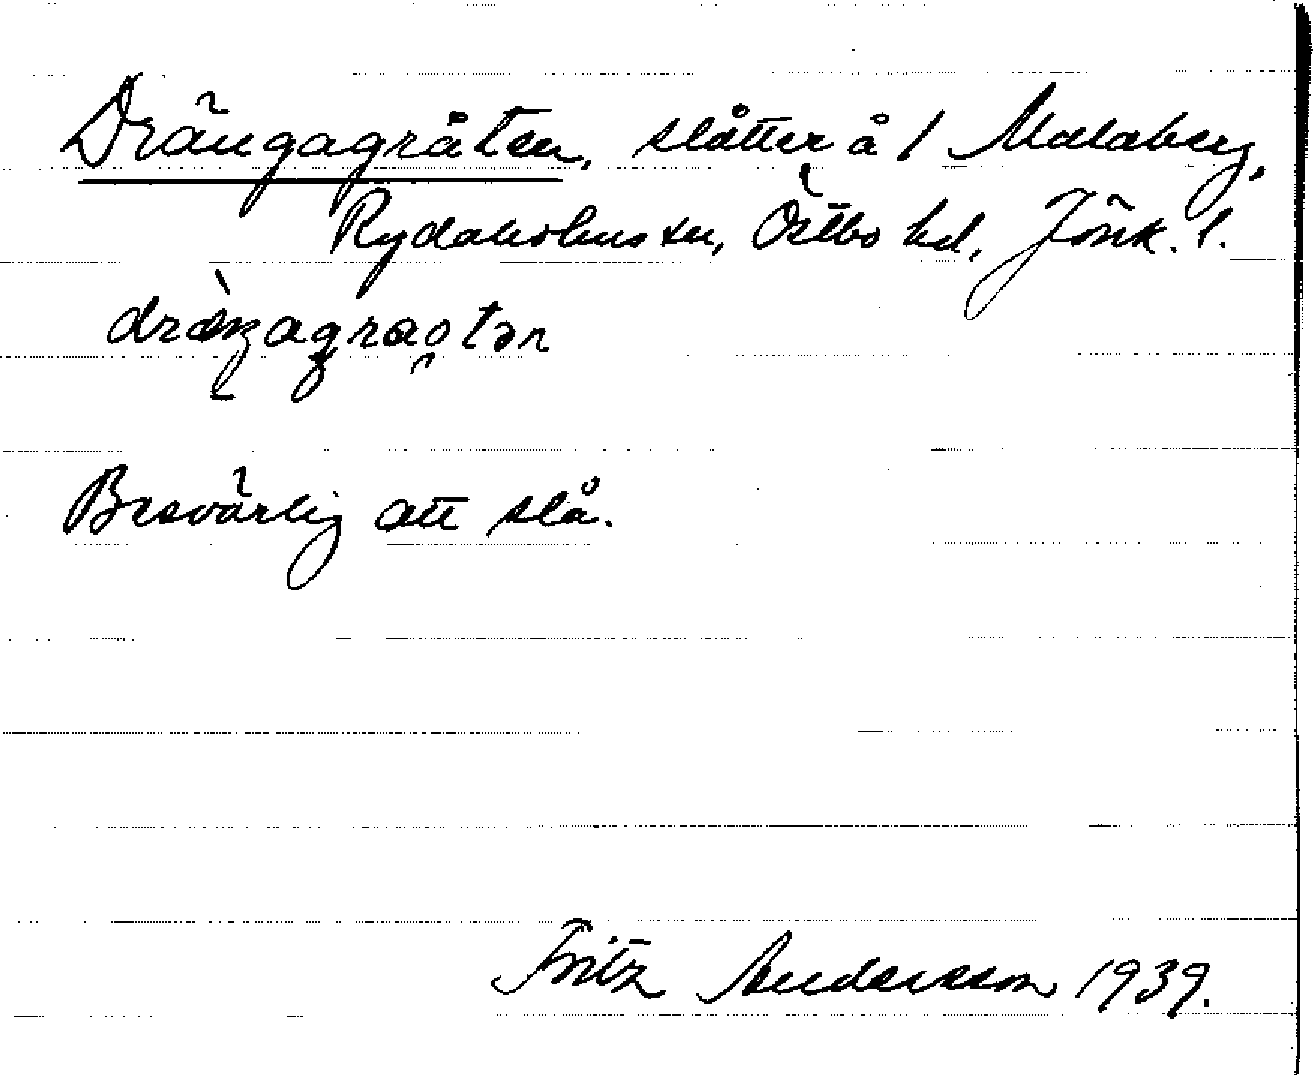 Drängagråten, slåtter å / Malaberg,
Rydaholms sn, Östbo hd, Jönk. l.
dräŋagraotən
Besvärlig att slå.
Fritz Andersson 1939.